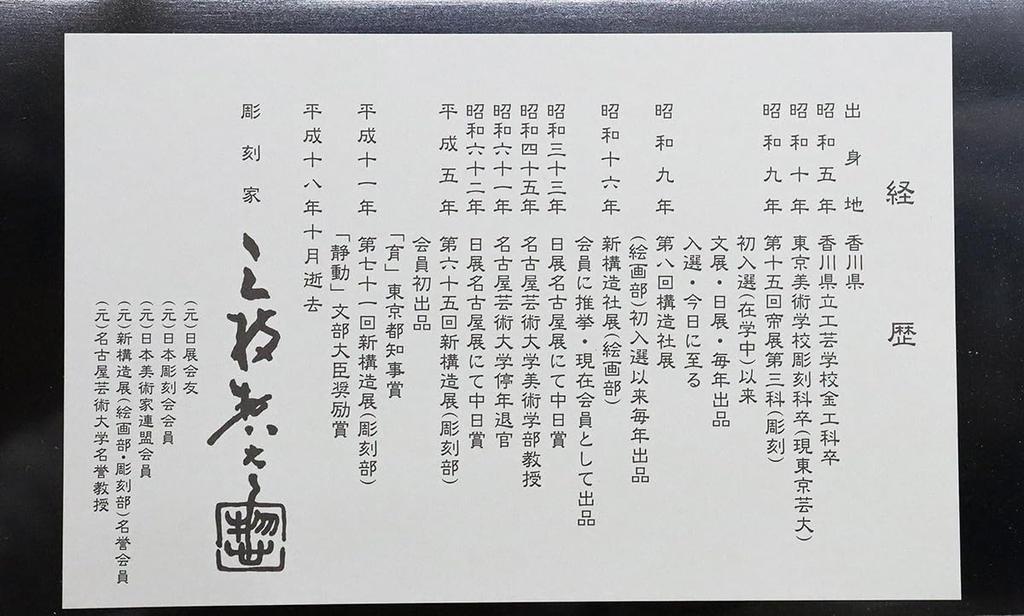 経歴
出身地 香川県
昭和五年 香川県立工芸学校金工科卒
昭和十年 東京美術学校彫刻科卒(現東京芸大)
昭和九年 第十五回帝展第三科(彫刻)
初入選(在学中)以来
文展・日展・毎年出品
入選・今日に至る
昭和九年 第八回構造社展
(絵画部)初入選以来毎年出品
昭和十六年 新構造社展(絵画部)
会員に推挙・現在会員として出品
昭和三十三年 日展名古屋展にて中日賞
昭和四十五年 名古屋芸術大学美術学部教授
昭和六十一年 名古屋芸術大学停年退官
昭和六十二年 日展名古屋展にて中日賞
平成五年 第六十五回新構造展(彫刻部)
会員初出品
「育」東京都知事賞
平成十一年 第七十一回新構造展(彫刻部)
「静動」文部大臣奨励賞
平成十八年十月逝去
彫刻家 三枝惣太郎
(元)日展会友
(元)日本彫刻会会員
(元)日本美術家連盟会員
(元)新構造展(絵画部・彫刻部)名誉会員
(元)名古屋芸術大学名誉教授